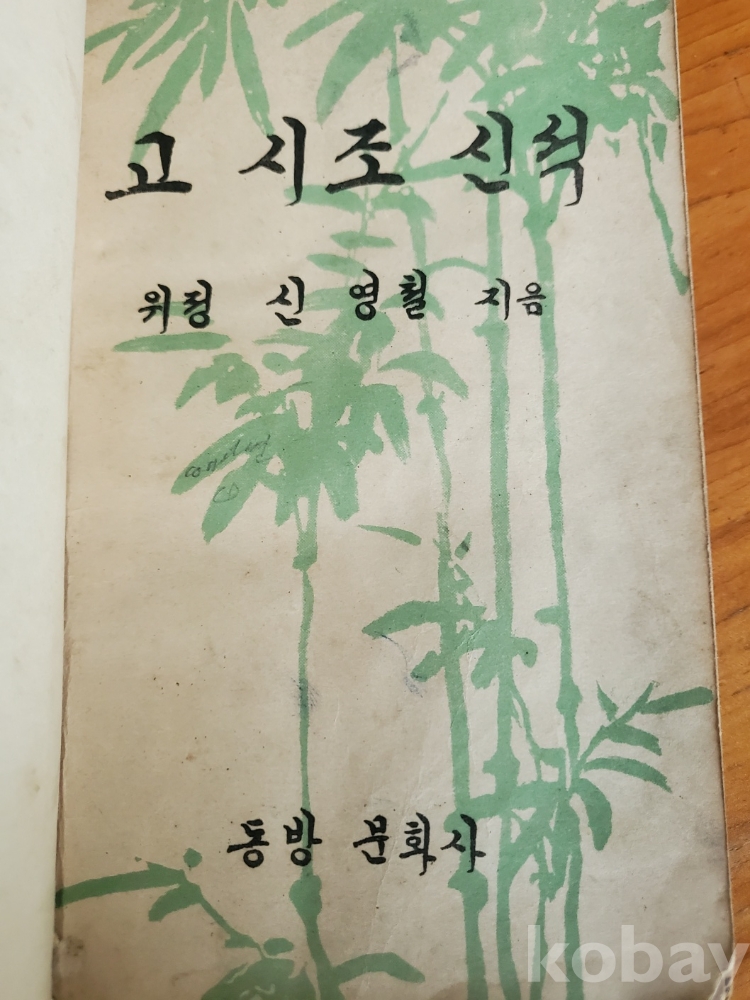 고 시조 신석
위정 신 영철 지음
동방 문화사
kobay